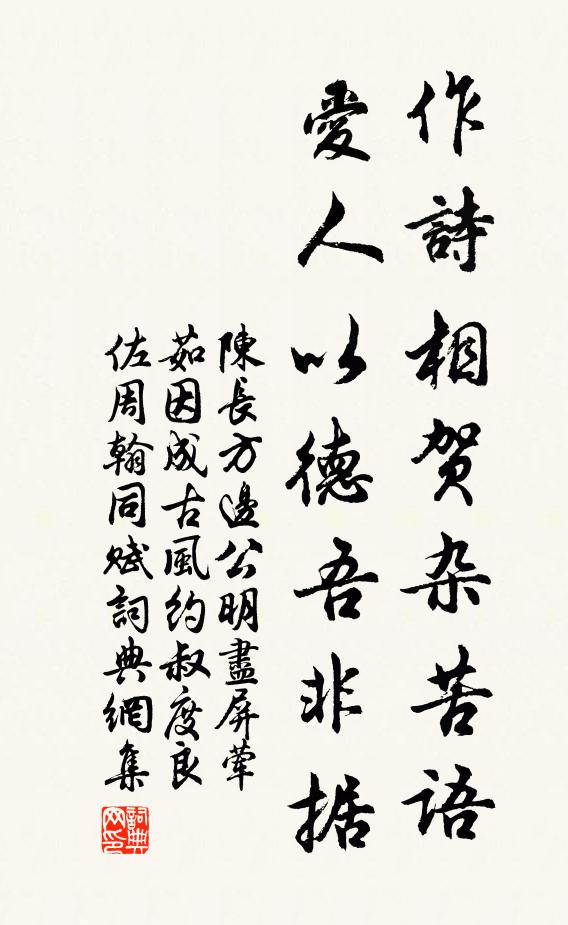 作詩相贺杂苦語
愛人以德吾非据
陳長方邊公明盡屏葷
茹因成古風約叔度良
佐周翰同赋詞典網集
詞典网印